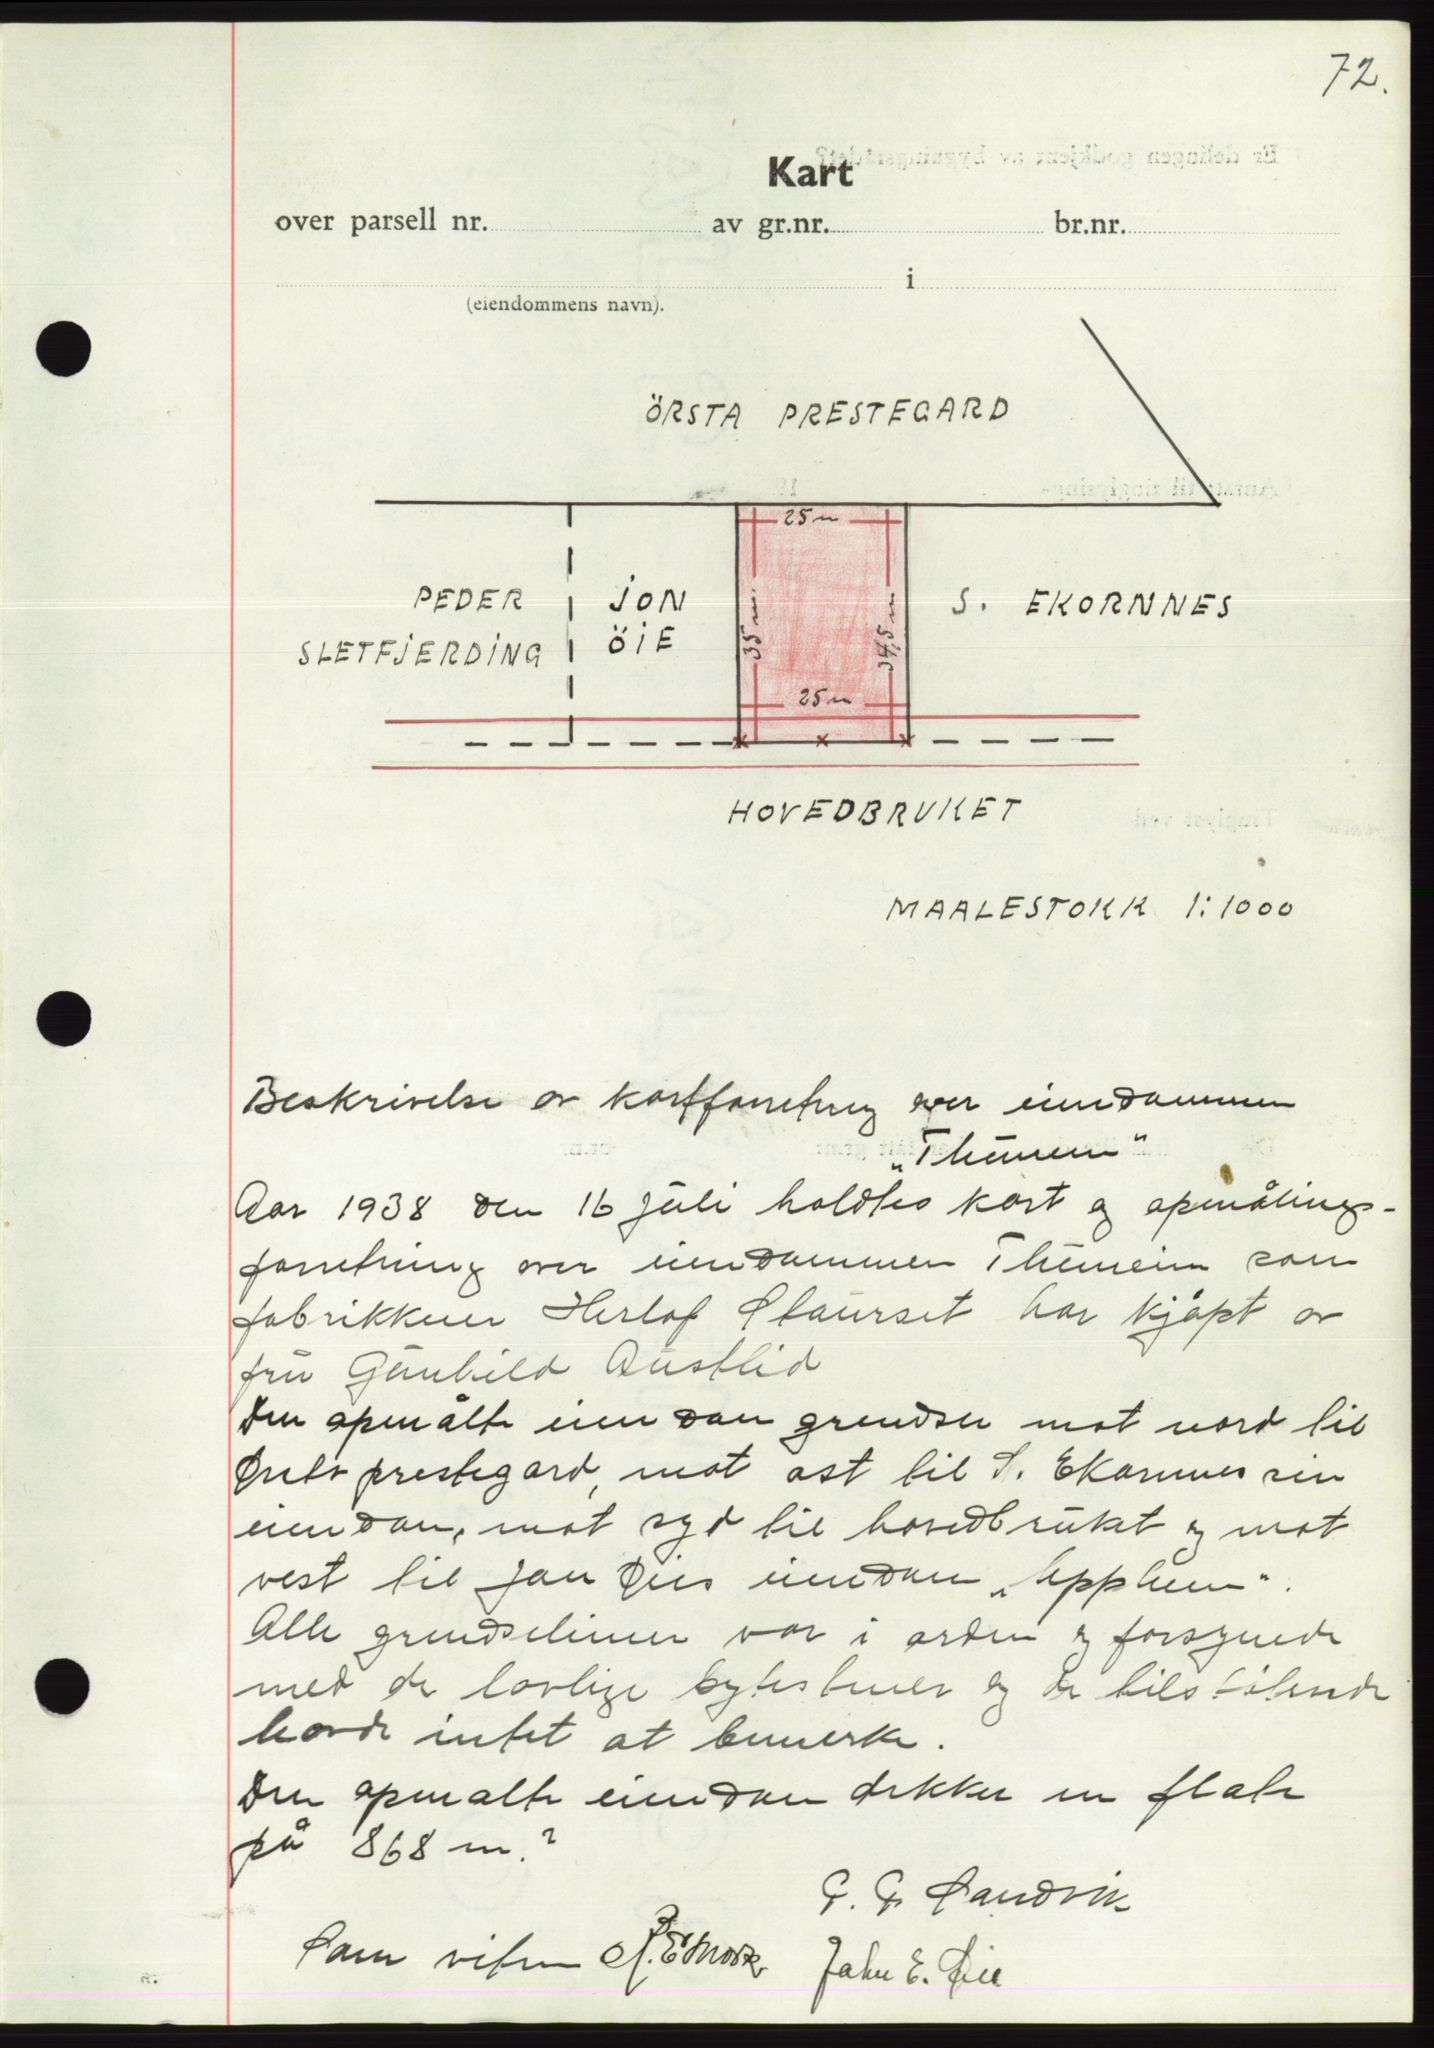 72.
Kart
over parsell nr. av gr.nr. br.nr.
i
(eiendommens navn).
ÖRSTA PRESTEGARD
25 m
PEDER
SLETFJERDING
JON
ÖIE
35 m.
34,5 m
S. EKORNNES
25 m
HOVEDBRUKET
MAALESTOKK 1:1000
Beskrivelse av kartforretning over eiendommen
"
Aar 1938 den 16 juli holdtes kart og opmålings-
forretning over eiendommen som
fabrikkeier Herlof Staurset har kjøpt av
fru Gunhild Austlid
Den opmålte eiendom grendser mot nord til
Ørsta prestegard, mot ost til S. Ekornnes sin
eiendom, mot syd til hovedbruket og mot
vest til Jon Øies eiendom „Uppheim".
Alle grendselinier var i orden og forsynede
med de lovlige bytesteiner og de tilstøtende
havde intet at bemerke.
Den opmalte eiendom dekker en flate
på 868 m.²
G. G. Sandvik
Som vitne John E. Øie